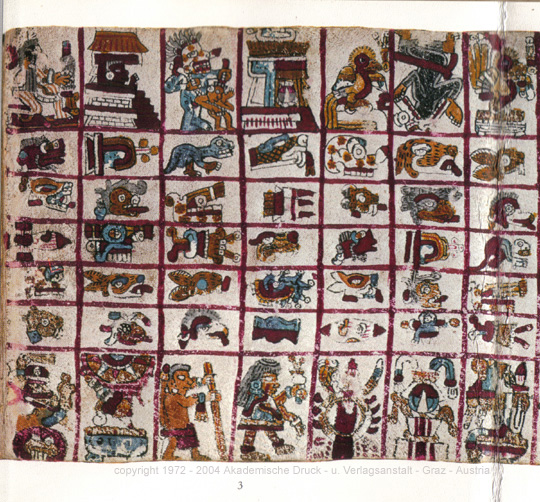 copyright 1972 - 2004 Akademische Druck - u. Verlagsanstalt - Graz - Austria
3